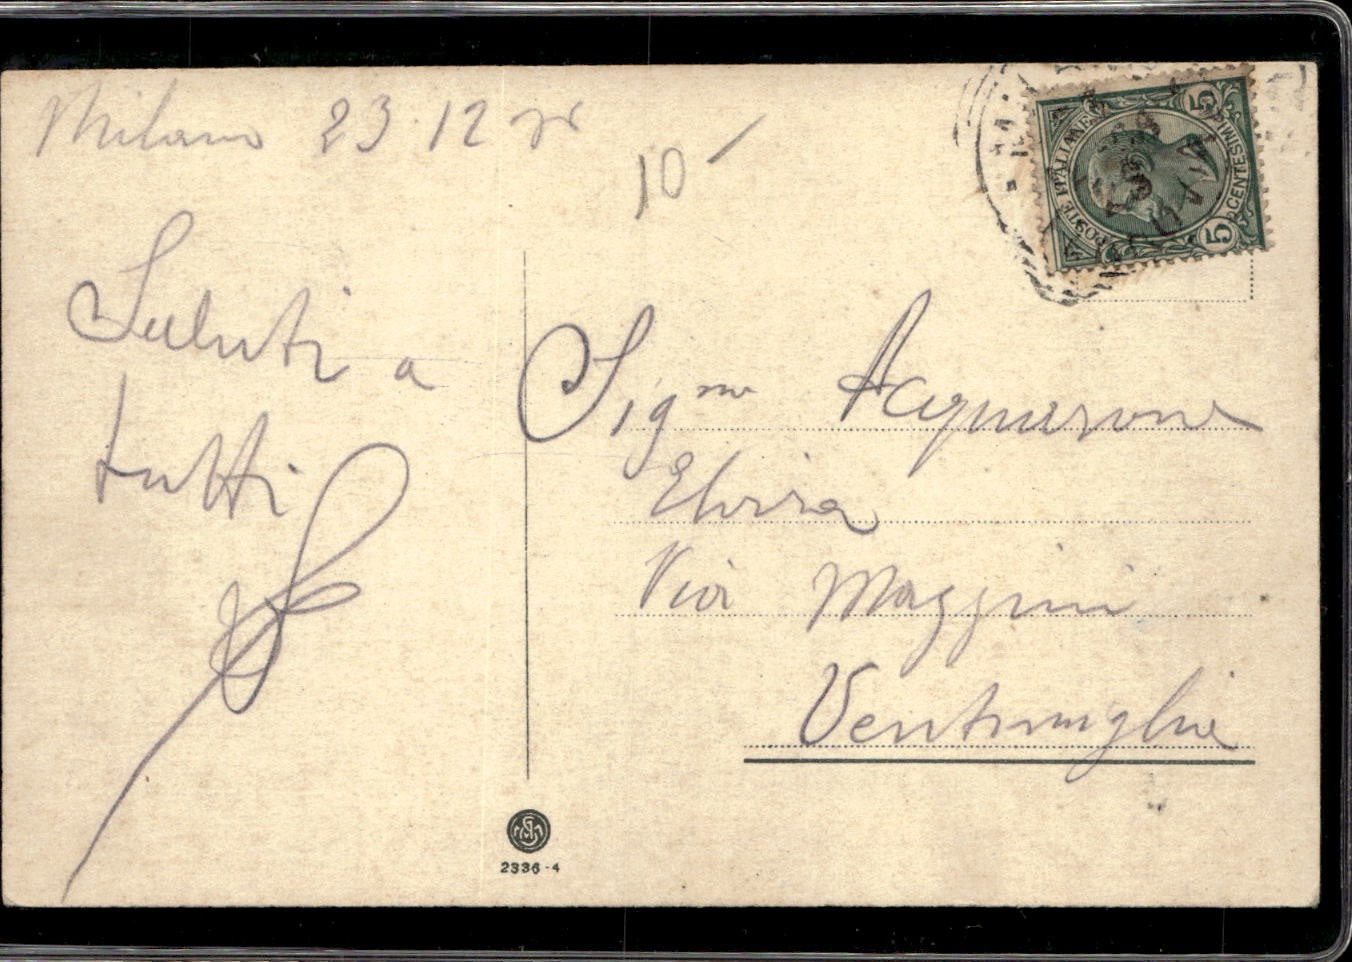 Milano 23.12
10
Saluti a
tutti
Sig.na Acquarone
Elvira
Via Mazzini
Ventimiglia
POSTE ITALIANE
5 CENTESIMI 5
2336-4